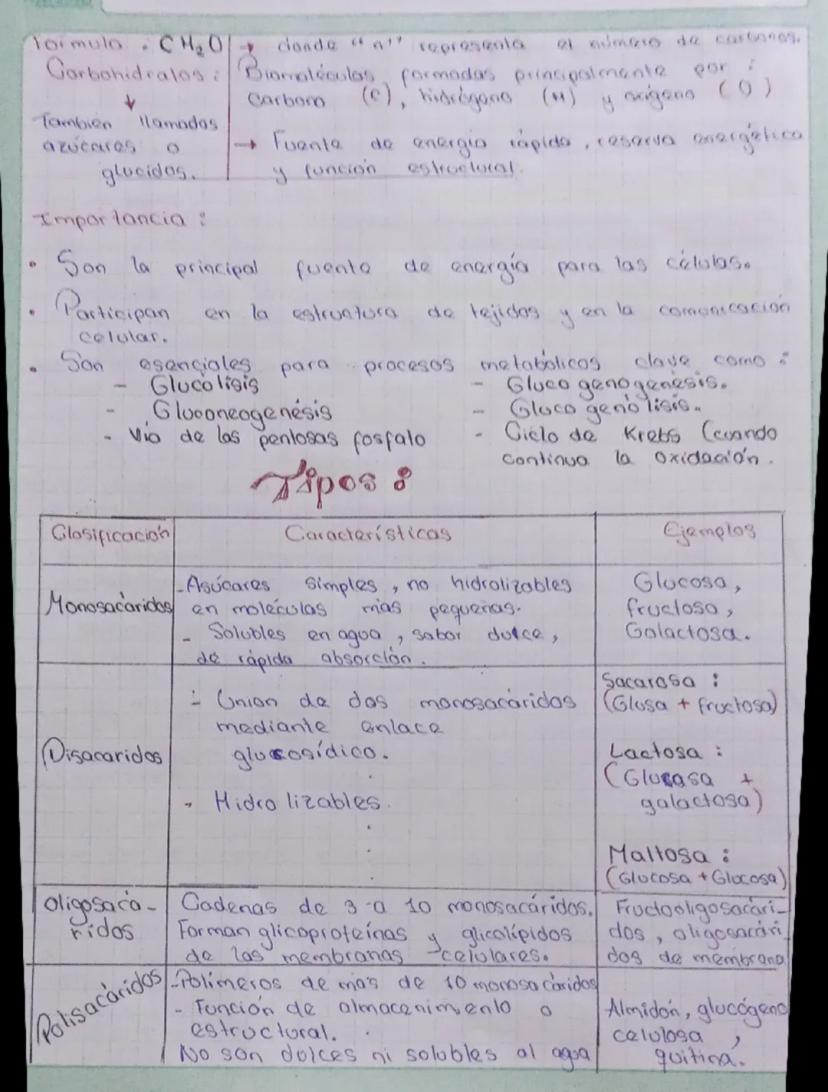 Fórmula : CH₂O → donde "n" representa el número de carbonos.
Carbohidratos : Biomoléculas formadas principalmente por :
carbono (C), hidrógeno (H) y oxígeno (O)
↓
También llamados
azúcares o
glucidos.
→ Fuente de energía rápida, reserva energética
y función estructural.
Importancia :
• Son la principal fuente de energía para las células.
• Participan en la estructura de tejidos y en la comunicación
celular.
• Son esenciales para procesos metabólicos clave como :
- Glucolisis
- Gluconeogenésis
- Vío de las pentosas fosfato
- Gluco genogenésis.
- Gluco genólisis.
- Ciclo de Krebs (cuando
continua la oxidación.
Tipos :
Clasificación Características Ejemplos
Monosacáridos
- Asúcares simples, no hidrolizables
en moléculas mas pequeñas.
- Solubles en agua, sabor dulce,
de rápida absorción.
Glucosa,
fructosa,
Galactosa.
Disacaridos
- Union de dos monosacáridos
mediante enlace
glucosídico.
- Hidrolizables.
Sacarosa :
(Glusa + fructosa)
Lactosa :
(Glucasa +
galactosa)
Maltosa :
(Glucosa + Glucosa)
Oligosacá-
ridos
Cadenas de 3 a 10 monosacáridos.
Forman glicoproteínas y glicolípidos
de las membranas celulares.
Fructooligosacári-
dos, oligosacári
dos de membrana
Polisacáridos
- Polímeros de mas de 10 monosacáridos
- Función de almacenimiento o
estructural.
No son dulces ni solubles al agua
Almidón, glucógeno
celulosa,
quitina.